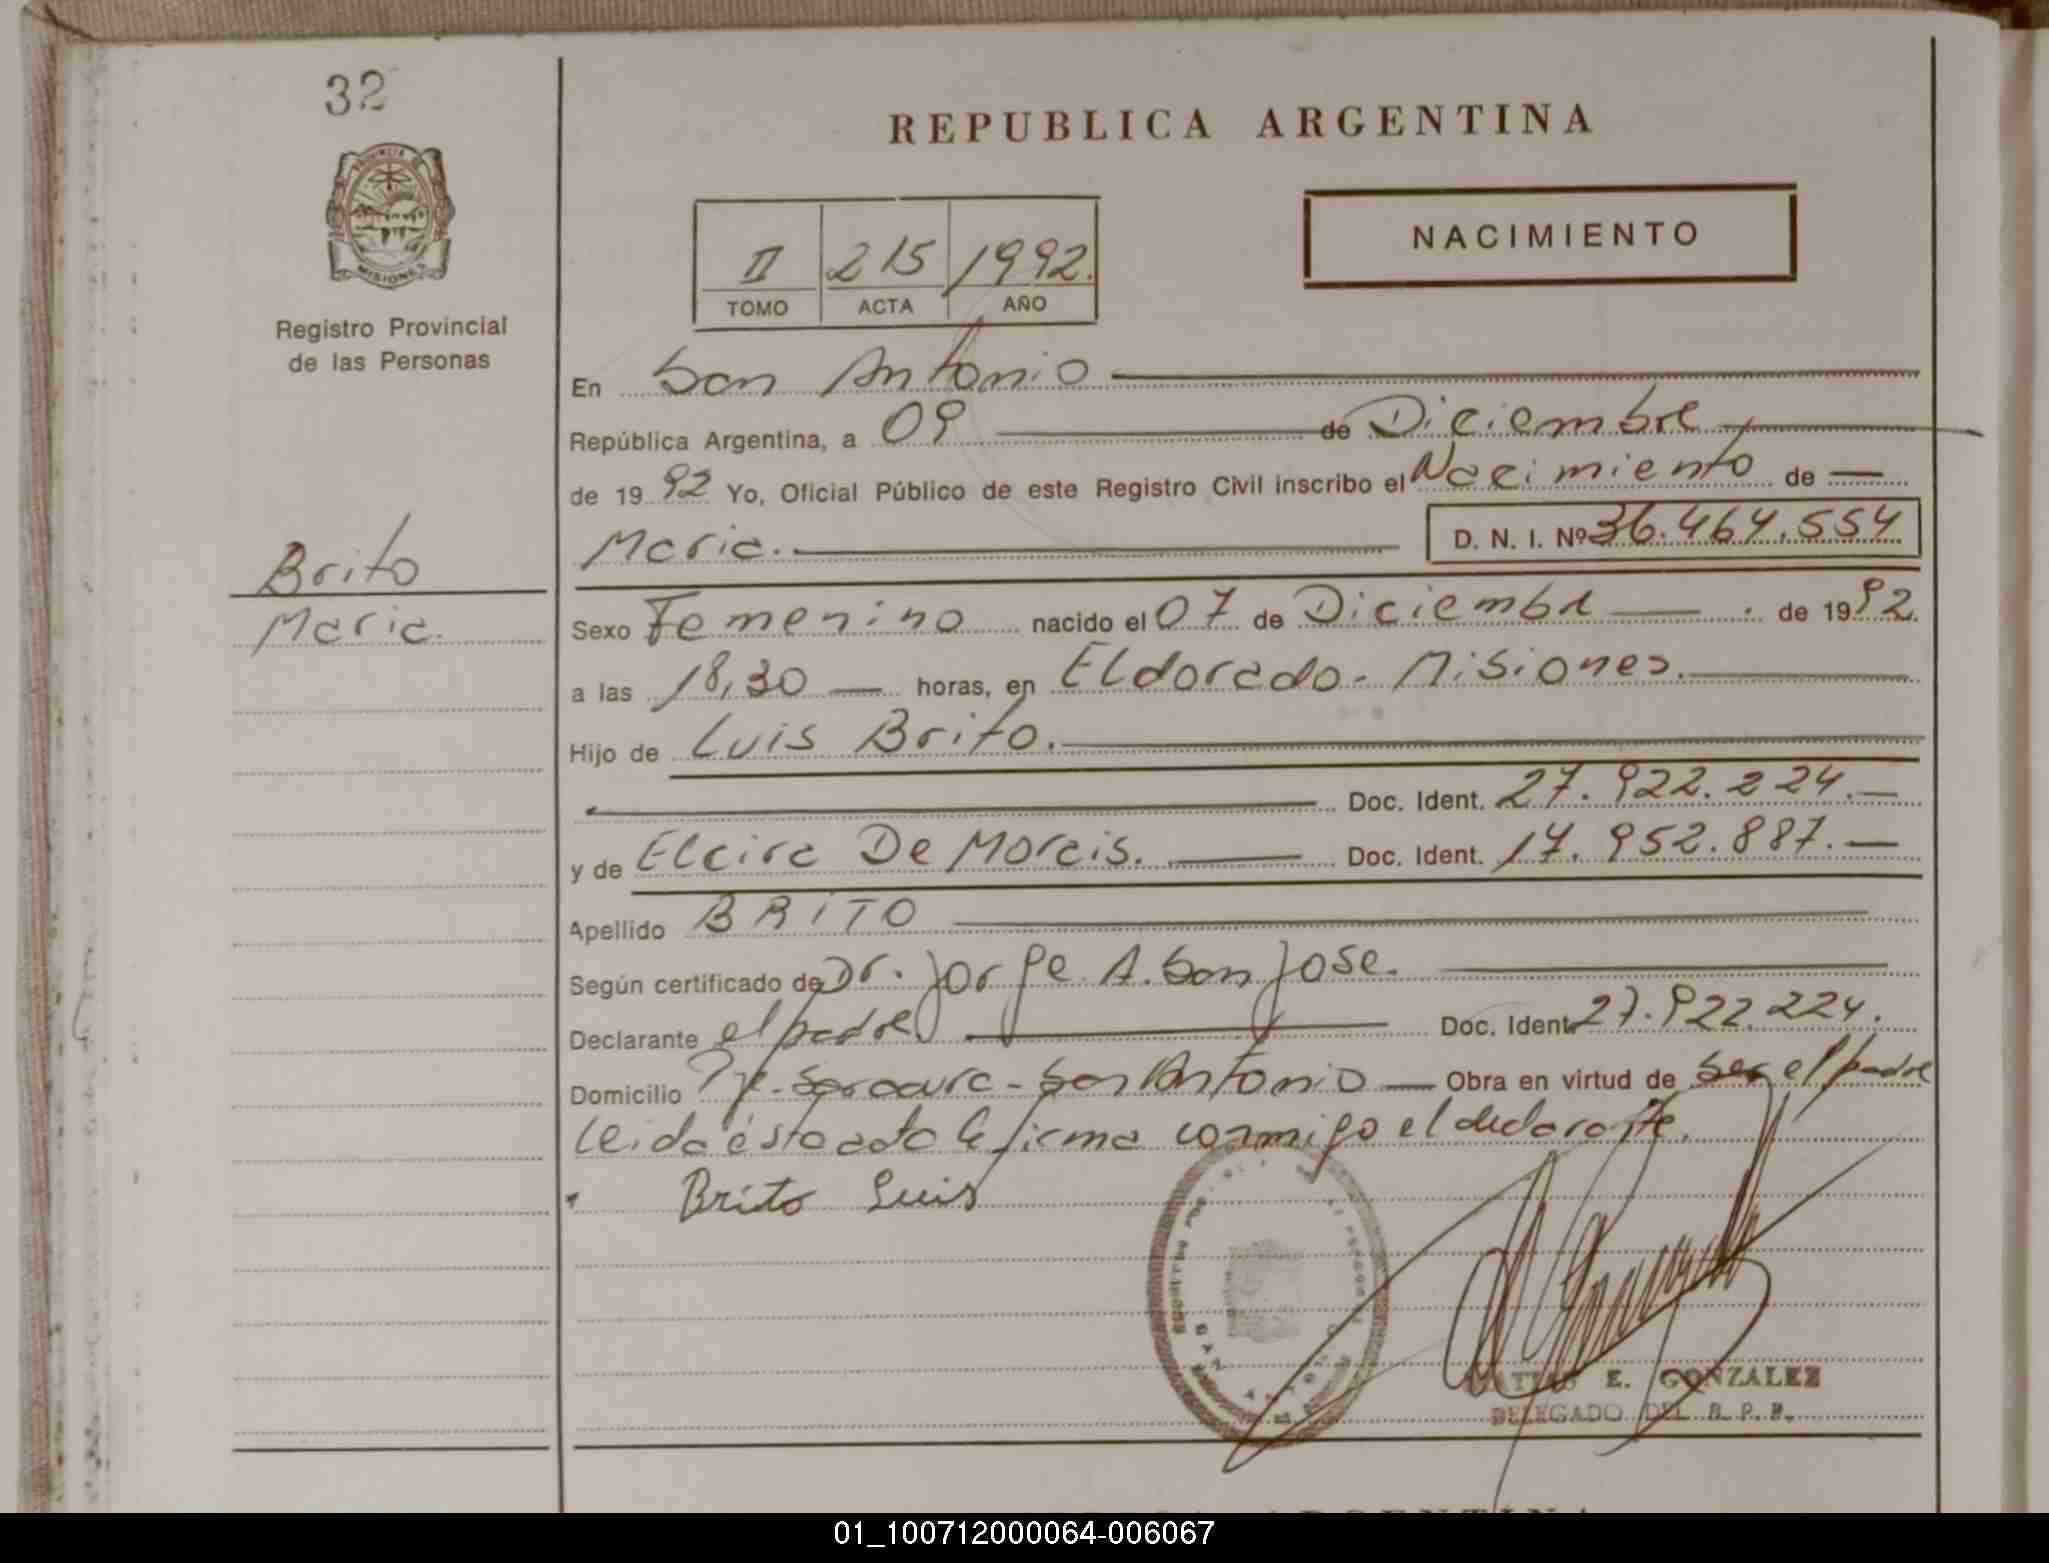 32
PROVINCIA DE
MISIONES
Registro Provincial
de las Personas
Brito
Maria.
REPUBLICA ARGENTINA
NACIMIENTO
II 215 1992.
TOMO ACTA AÑO
En San Antonio
República Argentina, a 09 de Diciembre
de 19 92 Yo, Oficial Público de este Registro Civil inscribo el Nacimiento de
Maria. D. N. I. Nº 36.464.554
Sexo Femenino nacido el 07 de Diciembre de 1992.
a las 18,30 horas, en Eldorado - Misiones.
Hijo de Luis Brito.
Doc. Ident. 27.922.224.
y de Elcira De Morais. Doc. Ident. 17.952.887.
Apellido BRITO
Según certificado de Dr. Jorge A. San Jose.
Declarante el padre Doc. Ident. 27.922.224.
Domicilio San Antonio Obra en virtud de ser el padre
Leida ésta acta la firma conmigo el declarante.
Brito Luis
SAN ANTONIO
MATIAS E. GONZALEZ
DELEGADO DEL R. P. P.
ARGENTINA
01_100712000064-006067